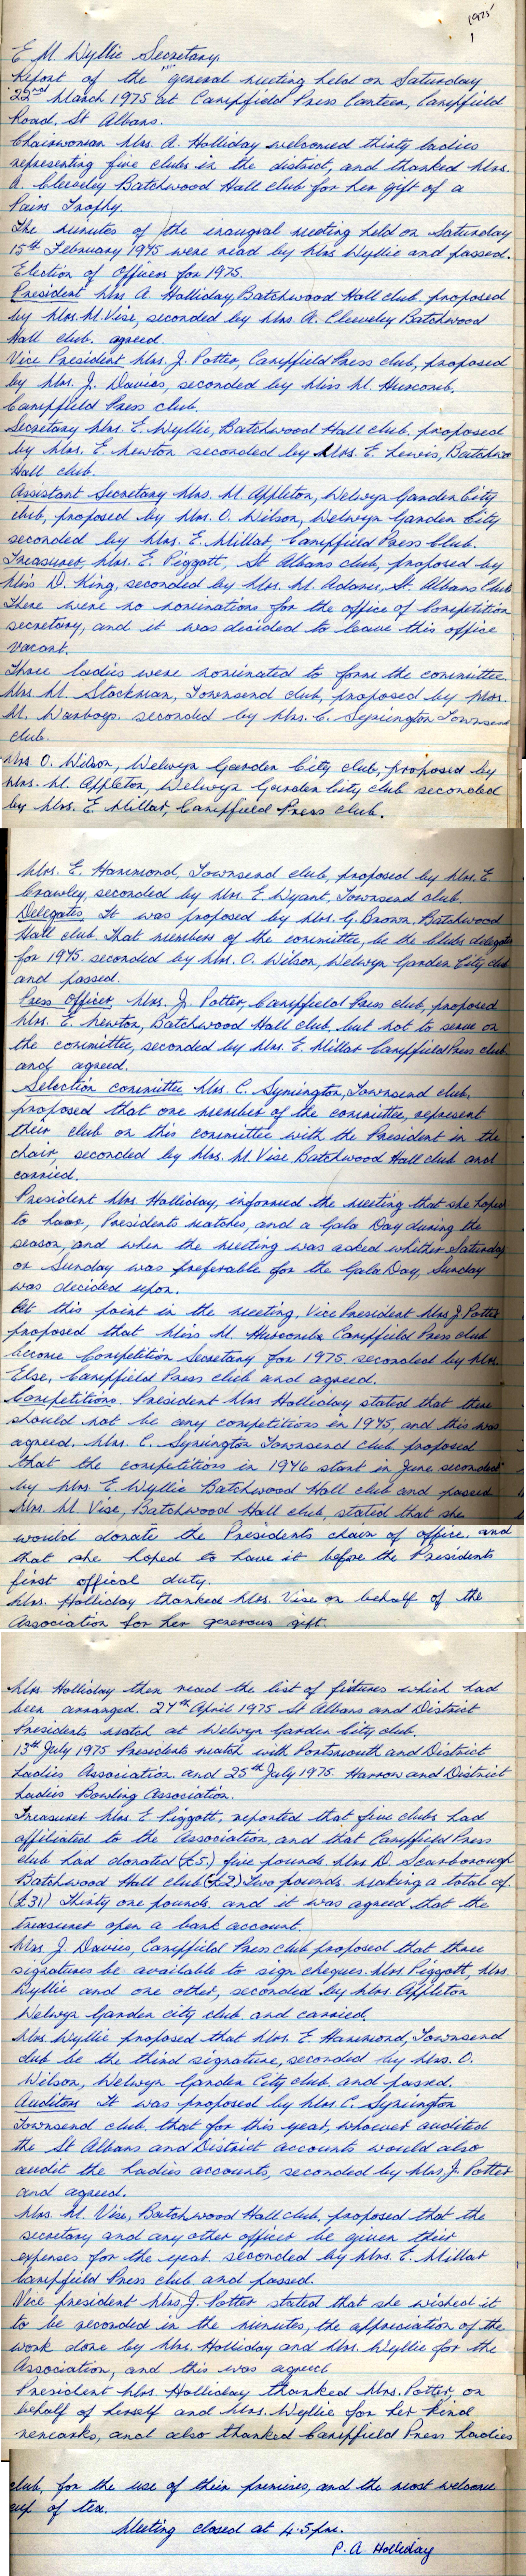 1975
1
E. M. Wyllie Secretary.
Report of the general meeting held on Saturday
22nd March 1975 at Campfield Press Canteen, Campfield
Road, St Albans.
Chairwoman Mrs. A. Holliday welcomed thirty ladies
representing five clubs in the district, and thanked Mrs.
A. Cleveley Batchwood Hall club for her gift of a
Pairs Trophy.
The minutes of the inaugral meeting held on Saturday
15th February 1975 were read by Mrs Wyllie and passed.
Election of Officers for 1975.
President Mrs A. Holliday, Batchwood Hall club, proposed
by Mrs. M. Vise, seconded by Mrs. A. Cleveley Batchwood
Hall club, agreed.
Vice President Mrs. J. Potter, Campfield Press club, proposed
by Mrs. J. Davies, seconded by Miss M. Huscomb,
Campfield Press club.
Secretary Mrs. E. Wyllie, Batchwood Hall club, proposed
by Mrs. E. Newton seconded by Mrs. E. Lewis, Batchwo
Hall club.
Assistant Secretary Mrs. M. Appleton, Welwyn Garden City
club, proposed by Mrs. O. Wilson, Welwyn Garden City
seconded by Mrs. E. Millar, Campfield Press Club.
Treasurer, Mrs. E. Piggott, St Albans club, proposed by
Miss D. King, seconded by Mrs. M. Adams, St. Albans Club
There were no nominations for the office of Competition
secretary, and it was decided to leave this office
vacant.
Three ladies were nominated to form the committee.
Mrs. M. Stockman, Townsend club, proposed by Mrs.
M. Warboys. seconded by Mrs. C. Symington Townsend
club.
Mrs. O. Wilson, Welwyn Garden City club, proposed by
Mrs. M. Appleton, Welwyn Garden City club seconded
by Mrs. E. Millar, Campfield Press club.
Mrs. E. Hammond, Townsend club, proposed by Mrs. E
Crawley, seconded by Mrs. E. Wyant, Townsend club.
Delegates. It was proposed by Mrs. G. Brown, Batchwood
Hall club, that members of the committee, be the Clubs delegates
for 1975. seconded by Mrs. O. Wilson, Welwyn Garden City club
and passed.
Press Officer, Mrs. J. Potter, Campfield Press club, proposed
Mrs. E. Newton, Batchwood Hall club, but not to serve on
the committee, seconded by Mrs. E. Millar Campfield Press club
and agreed.
Selection committee Mrs. C. Symington, Townsend club,
proposed that one member of the committee, represent
their club on this committee with the President in the
chair, seconded by Mrs. M. Vise Batchwood Hall club and
carried.
President Mrs. Holliday, informed the meeting that she hoped
to have, Presidents matches, and a Gala Day during the
season, and when the meeting was asked whether Saturday
or Sunday was preferable for the Gala Day, Sunday
was decided upon.
At this point in the meeting, Vice President Mrs J. Potter
proposed that Miss M Huscombe Campfield Press club
become Competition Secretary for 1975. seconded by Mrs.
Else, Campfield Press club and agreed.
Competitions. President Mrs Holliday stated that there
should not be any competitions in 1975, and this was
agreed. Mrs. C. Symington Townsend club proposed
that the competitions in 1976 start in June seconded
by Mrs E. Wyllie Batchwood Hall club and passed
Mrs. M. Vise, Batchwood Hall club, stated that she
would donate the Presidents chain of office. and
that she hoped to have it before the Presidents
first offical duty.
Mrs. Holliday thanked Mrs. Vise on behalf of the
Association for her generous gift.
Mrs Holliday then read the list of fixtures which had
been arranged. 27th April 1975 St Albans and District
Presidents match at Welwyn Garden City club.
13th July 1975 Presidents match with Portsmouth and District
Ladies Association. and 25th July 1975 Harrow and District
Ladies Bowling Association.
Treasurer Mrs. E. Piggott, reported that five clubs had
affiliated to the Association, and that Campfield Press
club had donated (£5.) five pounds. Mrs D. Scarborough
Batchwood Hall club (£2) Two pounds. making a total of
(£31) Thirty one pounds. and it was agreed that the
treasurer open a bank account.
Mrs J. Davies, Campfield Press club proposed that three
signatures be available to sign cheques. Mrs Piggott, Mrs.
Wyllie and one other, seconded by Mrs. Appleton
Welwyn Garden city club and carried.
Mrs. Wyllie proposed that Mrs. E. Hammond, Townsend
club be the third signature, seconded by Mrs. O.
Wilson, Welwyn Garden City club. and passed.
Auditors It was proposed by Mrs. C. Symington
Townsend club that for this year, whoever audited
the St Albans and District accounts would also
audit the Ladies accounts, seconded by Mrs J. Potter
and agreed.
Mrs. M. Vise, Batchwood Hall club, proposed that the
secretary and any other officer be given their
expenses for the year. seconded by Mrs. E. Millar
Campfield Press club and passed.
Vice president Mrs J. Potter stated that she wished it
to be recorded in the minutes, the appreciation of the
work done by Mrs. Holliday and Mrs. Wyllie for the
Association, and this was agreed.
President Mrs. Holliday thanked Mrs. Potter, on
behalf of herself and Mrs. Wyllie for her kind
remarks, and also thanked Campfield Press Ladies
club, for the use of their premises, and the most welcome
cup of tea.
Meeting closed at 4.5 pm.
P. A. Holliday